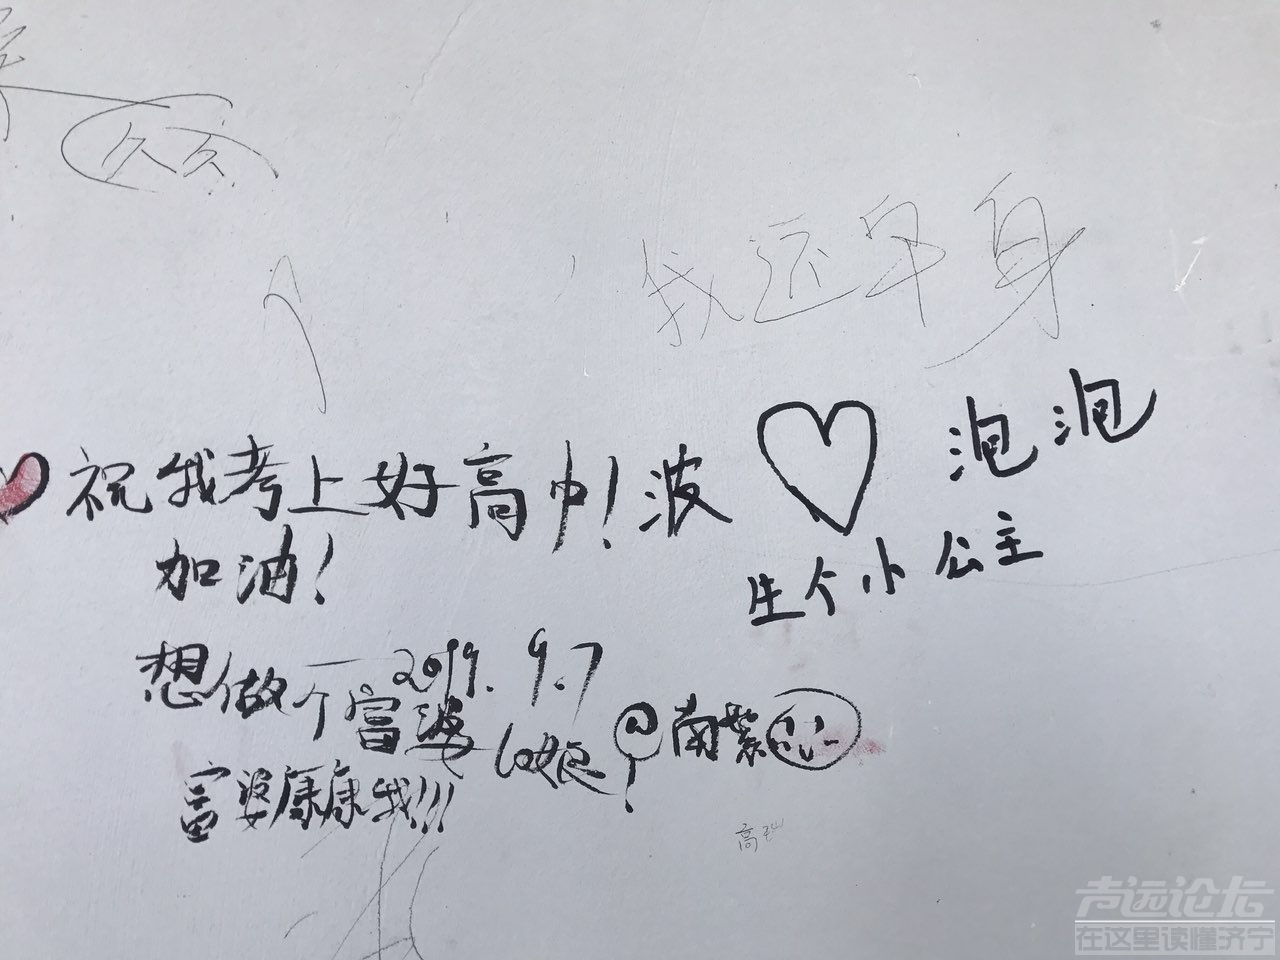 久久
我还单身
祝我考上好高中！
加油！
波 泡泡
生个小公主
2019.9.7
想做个富婆
南紫
富婆康康我!!!
高
声远论坛
在这里读懂济宁